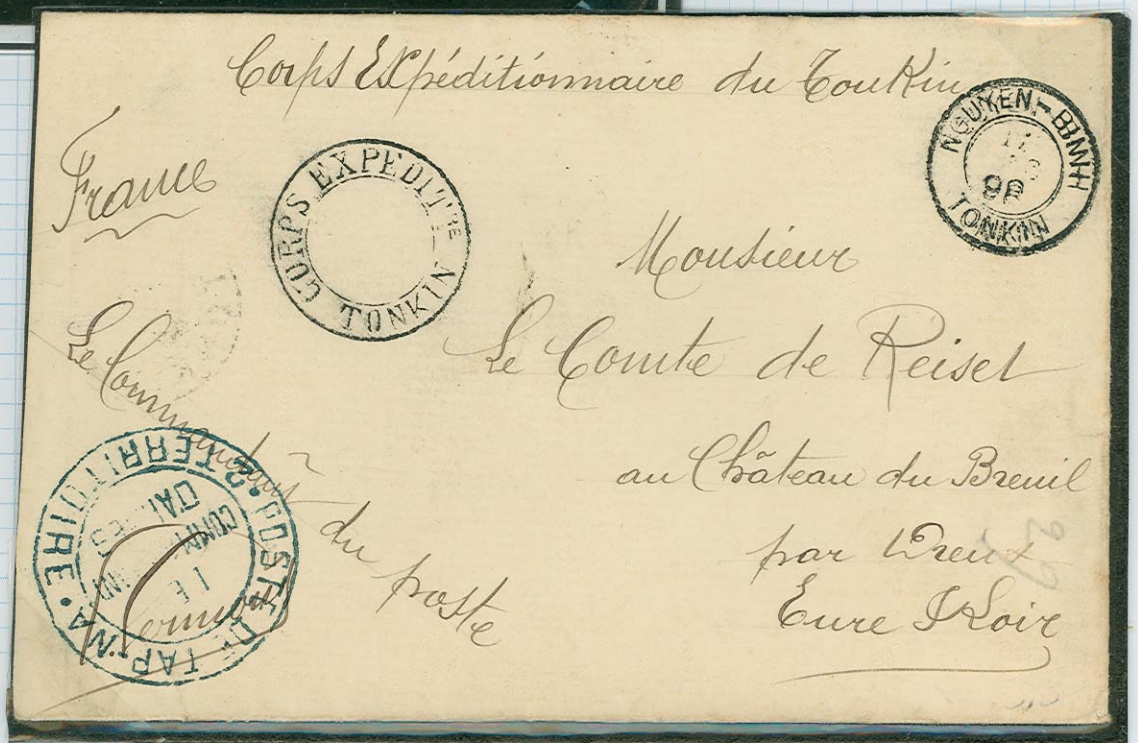 Corps Expéditionnaire du Tonkin
France
CORPS EXPEDITRE
TONKIN
NGUYEN-BINH
17
96
TONKIN
Monsieur
Le Comte de Reiset
au Château du Breuil
par Dreux
Eure & Loir
Le Commandant du poste
POSTE DE TAP-NA • 2 TERRITOIRE •
LE
COMMANDANT
D'ARMES
29